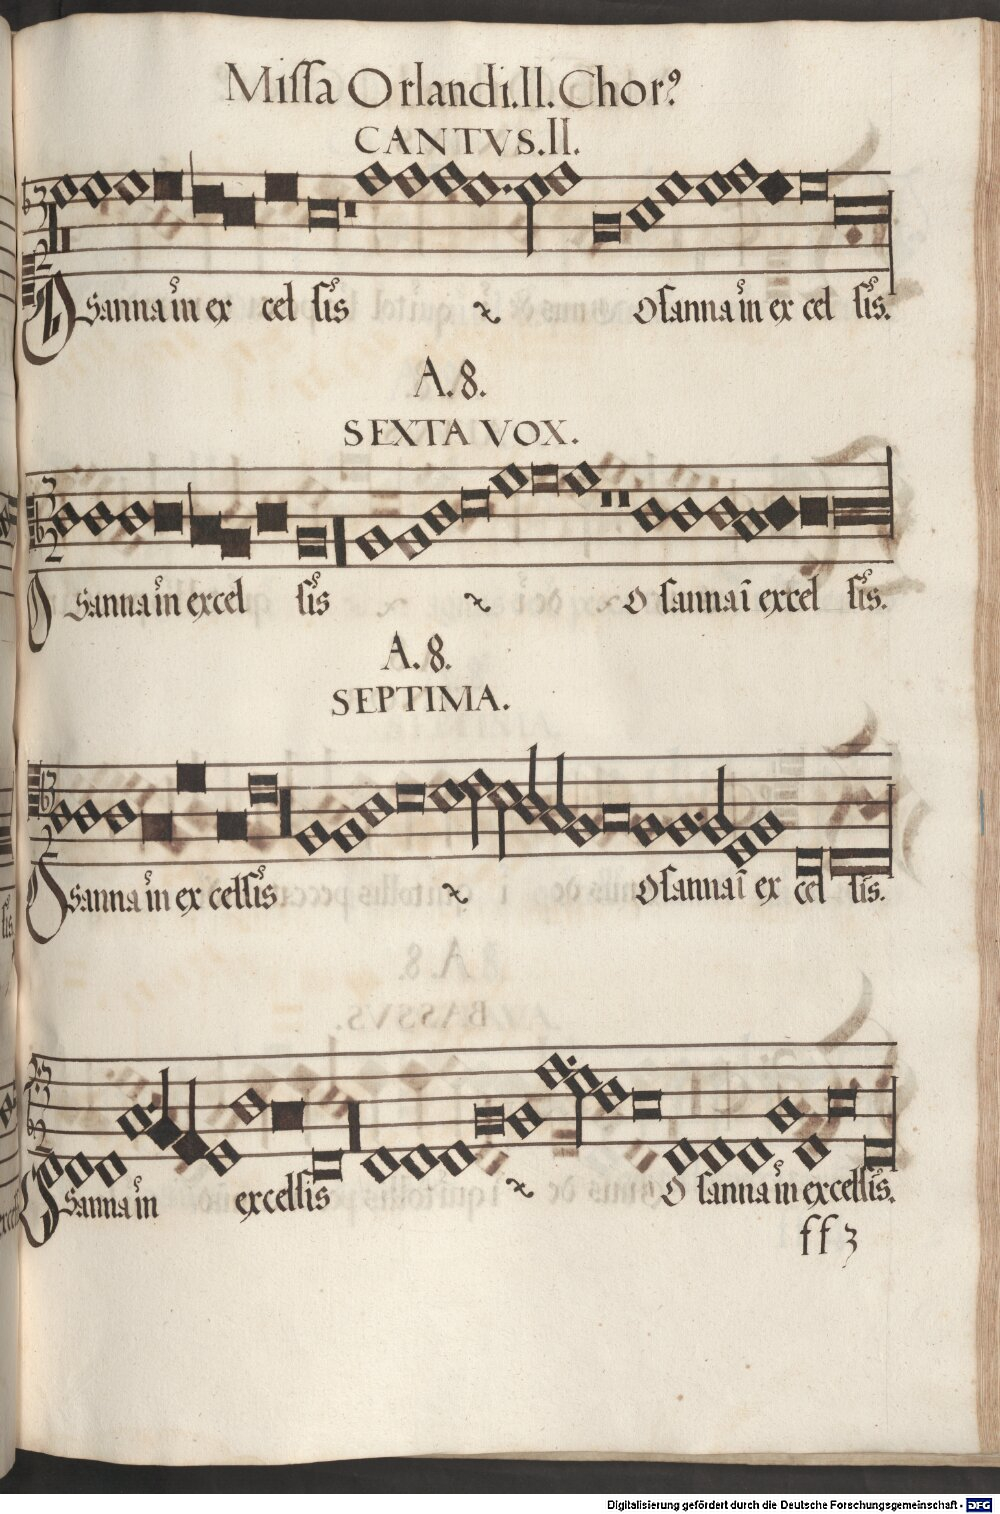 Missa Orlandi. II. Chorꝰ
CANTVS. II.
Osanna in ex cel sis ꝛ Osanna in ex cel sis.
A. 8.
SEXTA VOX.
Osanna in excel sis ꝛ O sanna ī excel sis.
A. 8.
SEPTIMA.
Osanna in ex celsis ꝛ Osanna ī ex cel sis.
Osanna in excelsis ꝛ O sanna in excelsis.
ff 3
Digitalisierung gefördert durch die Deutsche Forschungsgemeinschaft - DFG